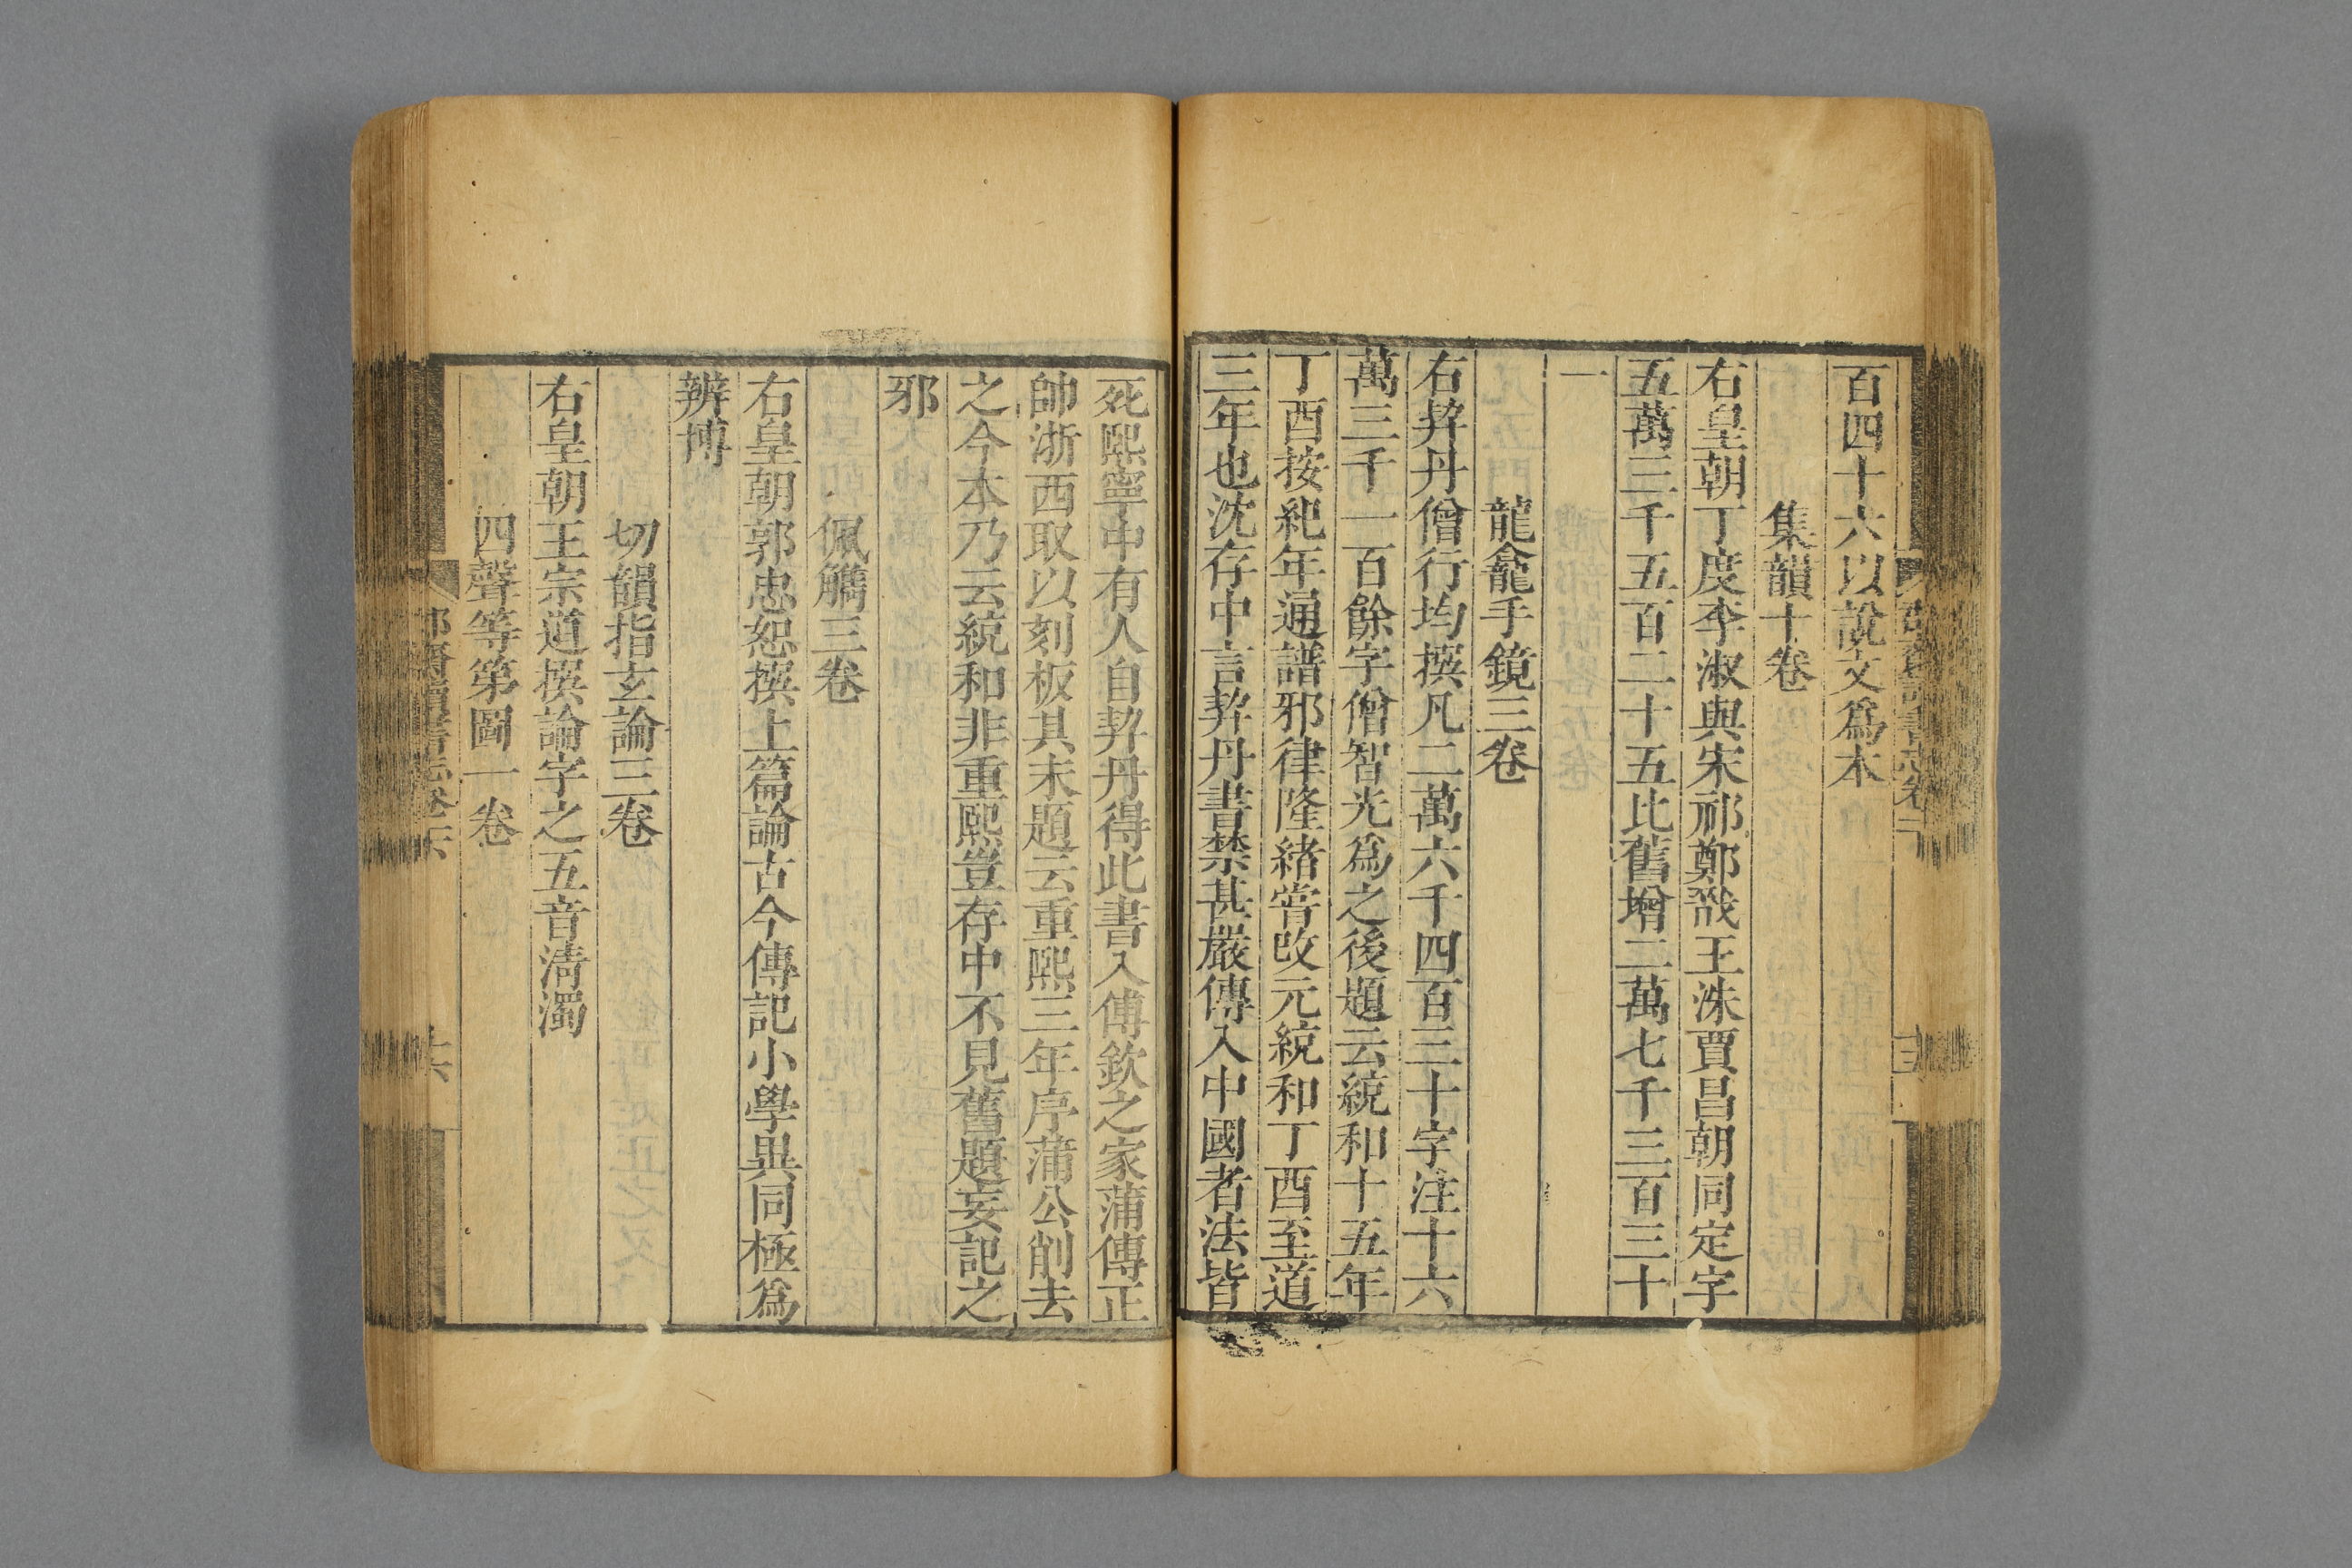 百四十六以說文爲本
集韻十卷
右皇朝丁度李淑與宋祁鄭戩王洙賈昌朝同定字
五萬三千五百二十五比舊增二萬七千三百三十
一
龍龕手鏡三卷
右契丹僧行均撰凡二萬六千四百三十字注十六
萬三千一百餘字僧智光爲之後題云統和十五年
丁酉按紀年通譜邪律隆緒嘗改元統和丁酉至道
三年也沈存中言契丹書禁甚嚴傳入中國者法皆
死熙寧中有人自契丹得此書入傅欽之家蒲傳正
帥浙西取以刻板其末題云重熙三年序蒲公削去
之今本乃云統和非重熙豈存中不見舊題妄記之
邪
佩觿三卷
右皇朝郭忠恕撰上篇論古今傳記小學異同極爲
辨博
切韻指玄論三卷
右皇朝王宗道撰論字之五音清濁
四聲等第圖一卷